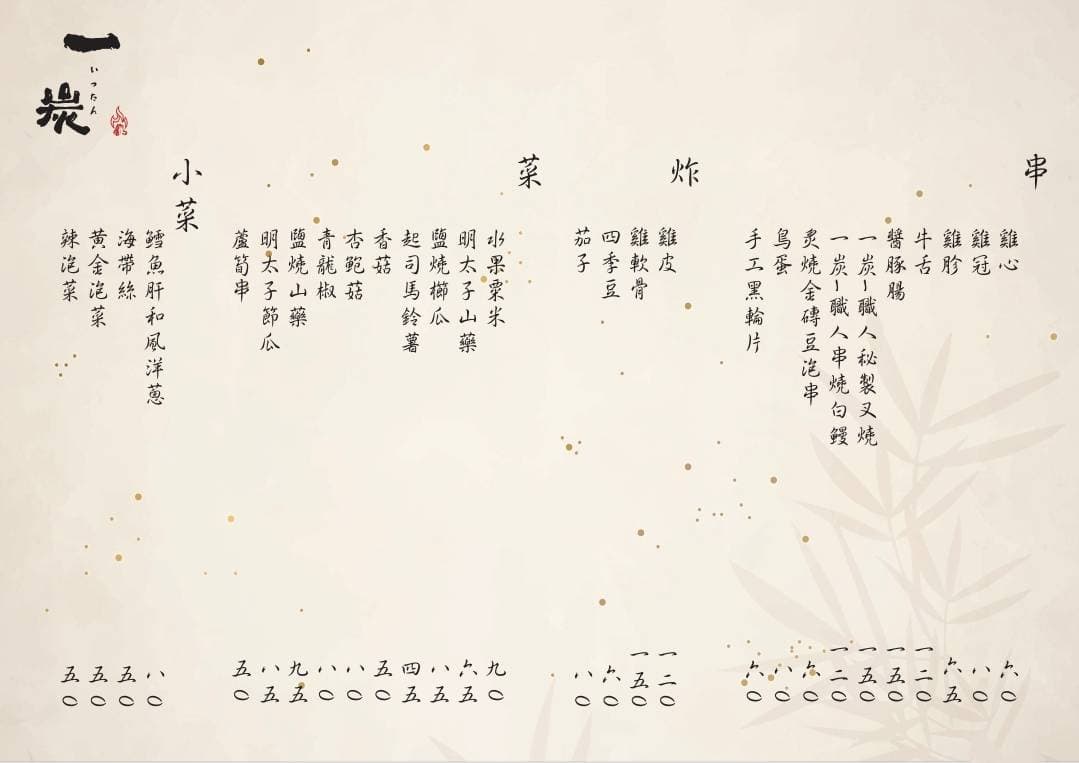 一炭
いったん
串
雞心 六〇
雞冠 八〇
雞胗 六五
牛舌 一二〇
醬豚腸 一五〇
一炭-職人秘製叉燒 一五〇
一炭-職人串燒白鰻 一二〇
炙燒金磚豆泡串 六〇
鳥蛋 八〇
手工黑輪片 六〇
炸
雞皮 一二〇
雞軟骨 一五〇
四季豆 六〇
茄子 八〇
菜
水果粟米 九〇
明太子山藥 六五
鹽燒櫛瓜 八五
起司馬鈴薯 四五
香菇 五〇
杏鮑菇 八〇
青龍椒 八〇
鹽燒山藥 九五
明太子節瓜 八五
蘆筍串 五〇
小菜
鱈魚肝和風洋蔥 八〇
海帶絲 五〇
黃金泡菜 五〇
辣泡菜 五〇